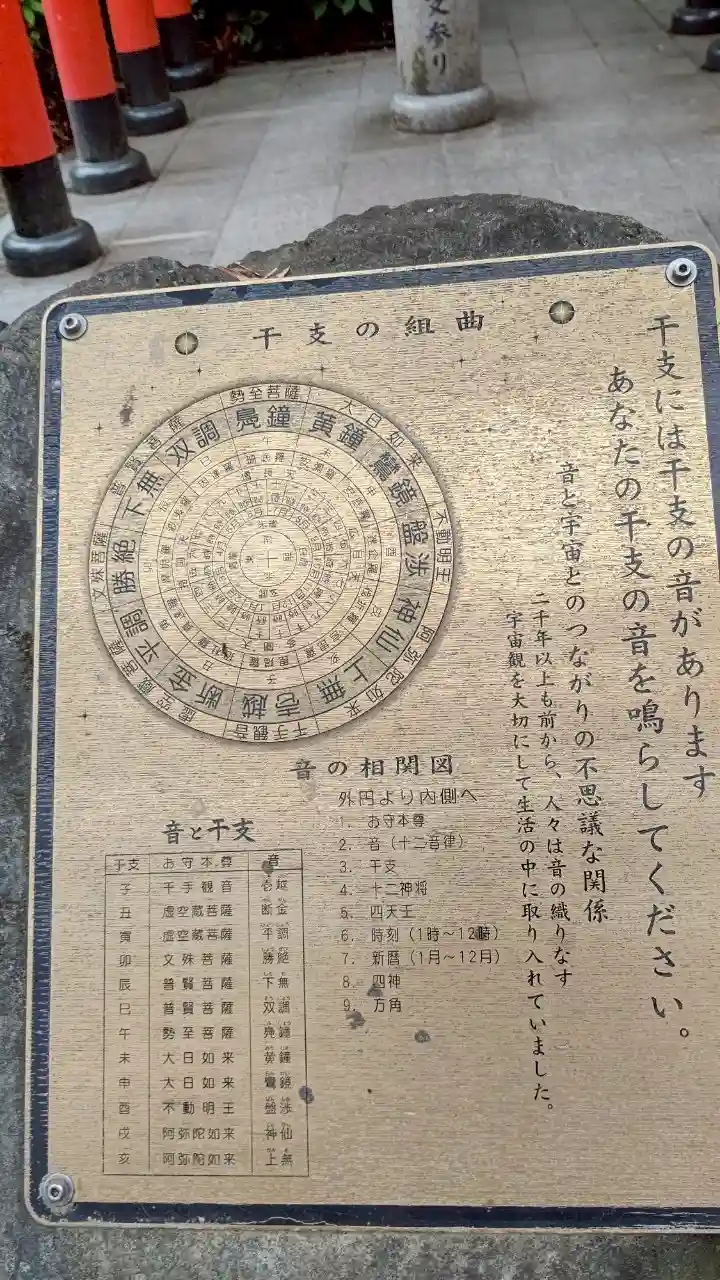 文参り
干支の組曲
干支には干支の音があります
あなたの干支の音を鳴らしてください。
音と宇宙とのつながりの不思議な関係
二千年以上も前から、人々は音の織りなす
宇宙観を大切にして生活の中に取り入れていました。
勢至菩薩
大日如来
不動明王
阿弥陀如来
千手観音
虚空蔵菩薩
文殊菩薩
普賢菩薩
鳧鐘
黄鐘
鸞鏡
盤渉
神仙
上無
壱越
断金
平調
勝絶
下無
双調
音の相関図
外円より内側へ
1. お守本尊
2. 音（十二音律）
3. 干支
4. 十二神将
5. 四天王
6. 時刻（1時～12時）
7. 新暦（1月～12月）
8. 四神
9. 方角
音と干支
干支 お守本尊 音
子 千手観音 壱越
丑 虚空蔵菩薩 断金
寅 虚空蔵菩薩 平調
卯 文殊菩薩 勝絶
辰 普賢菩薩 下無
巳 普賢菩薩 双調
午 勢至菩薩 鳧鐘
未 大日如来 黄鐘
申 大日如来 鸞鏡
酉 不動明王 盤渉
戌 阿弥陀如来 神仙
亥 阿弥陀如来 上無